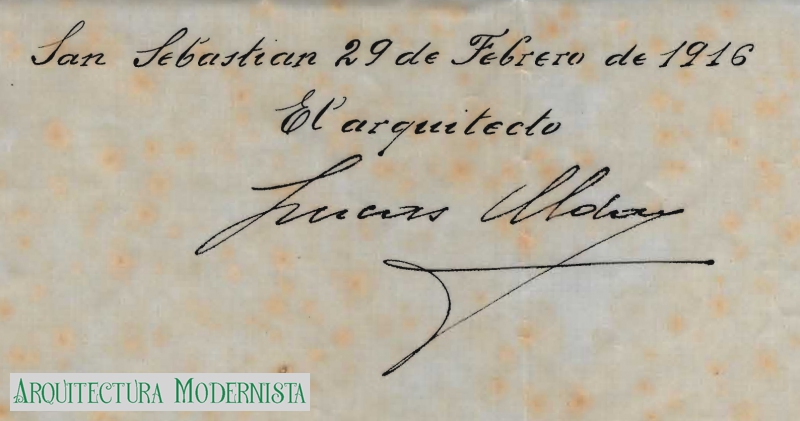 San Sebastian 29 de Febrero de 1916
El arquitecto
Lucas Alday
ARQUITECTURA MODERNISTA